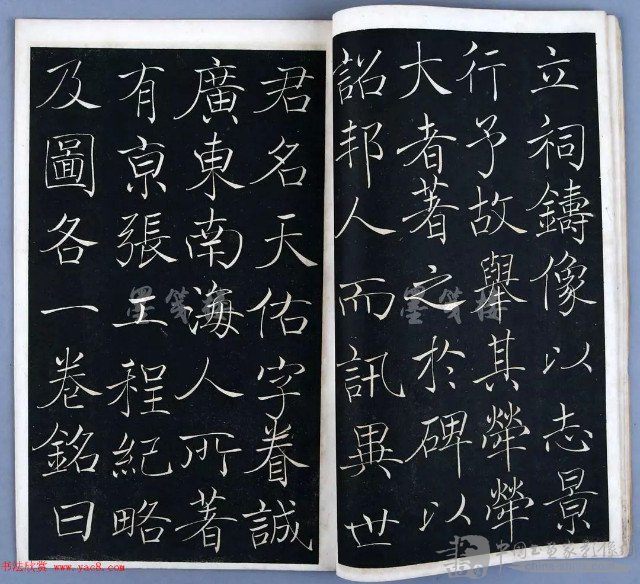 立祠鑄像以志景
行予故舉其犖犖
大者著之於碑以
詔邦人而訊異世
君名天佑字眷誠
廣東南海人所著
有亰張工程紀略
及圖各一卷銘曰
墨笺楼
墨笺楼
书法欣赏 www.yac8.com